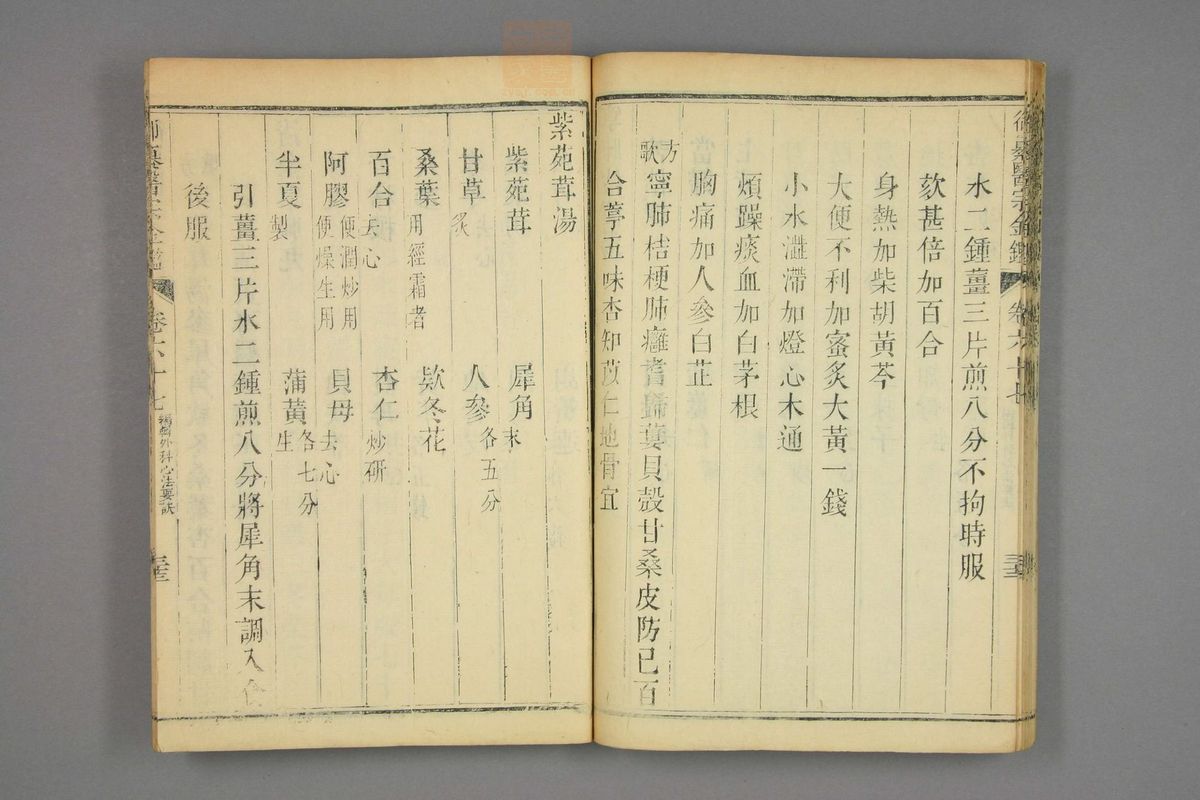 御纂醫宗金鑑 卷六十七 三十三
水二鍾薑三片煎八分不拘時服
欬甚倍加百合
身熱加柴胡黃芩
大便不利加蜜炙大黃一錢
小水澀滯加燈心木通
煩躁痰血加白茅根
胸痛加人參白芷
方歌 寧肺桔梗肺癰耆歸蔞貝殼甘桑皮防已百
合葶五味杏知苡仁地骨宜
紫苑茸湯
紫苑茸 犀角末
甘草炙 人參各五分
桑葉用經霜者 欵冬花
百合去心 杏仁炒研
阿膠便潤炒用便燥生用 貝母去心
半夏製 蒲黃生各七分
引薑三片水二鍾煎八分將犀角末調入食
後服
御纂醫宗金鑑 卷六十七 編輯外科心法要訣 三十三